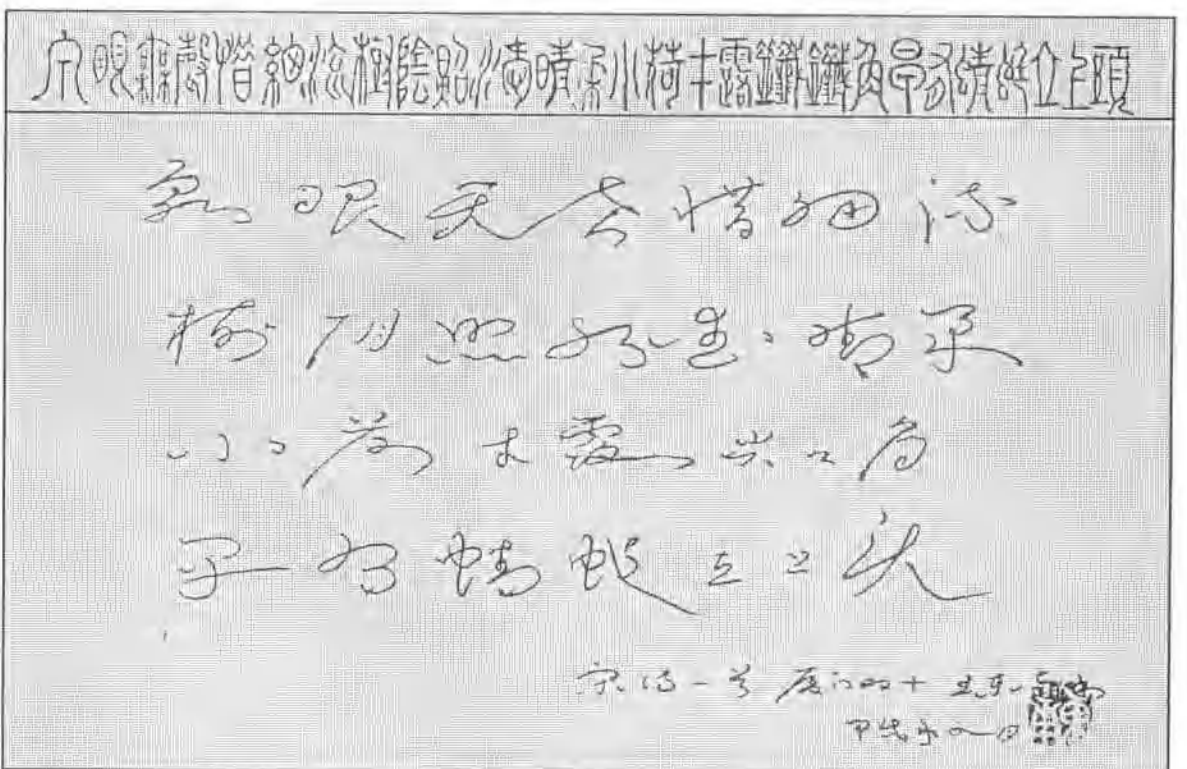 泉眼無聲惜細流樹陰照水愛晴柔小荷才露鑯鑯角早有蜻蜓立上頭
泉眼无声惜细流
树阴照水爱晴柔
小荷才露尖尖角
早有蜻蜓立上头
宋诗一首